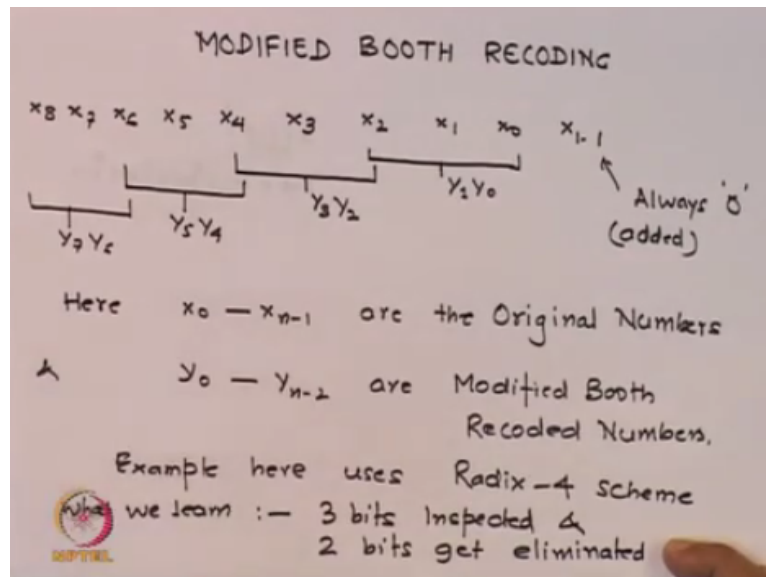 MODIFIED BOOTH RECODING
x8 x7 x6 x5 x4 x3 x2 x1 x0 x1-1
Y1 Y0
Y3 Y2
Y5 Y4
Y7 Y6
Always '0'
(added)
Here x0 — xn-1 are the Original Numbers
& y0 — Yn-2 are Modified Booth
Recoded Numbers.
Example here uses Radix-4 scheme
What we learn :- 3 bits Inspected &
2 bits get eliminated
NPTEL